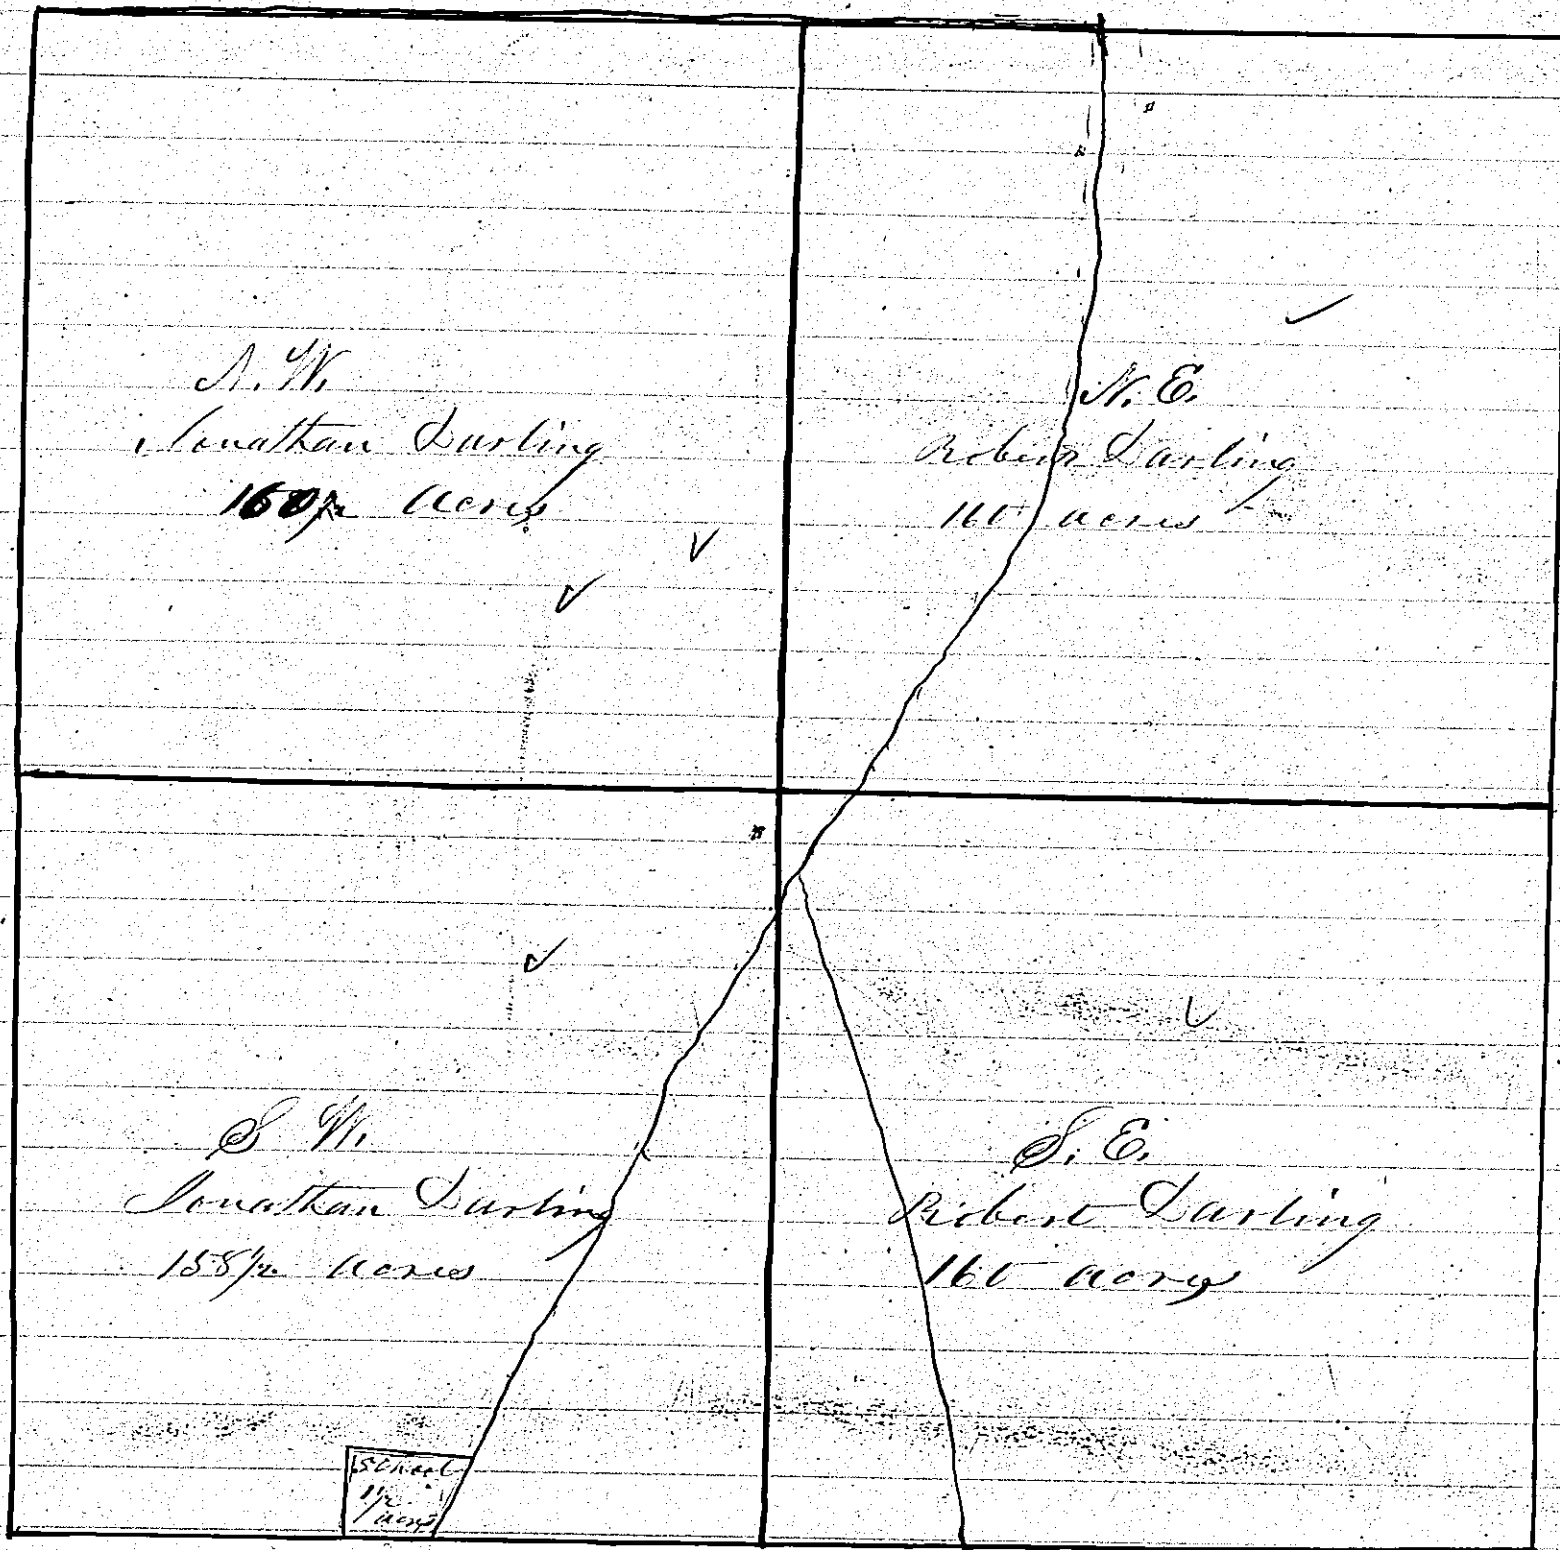 N. W.
Jonathan Darling
acres
N. E.
Robert Darling
160 acres
S W.
Jonathan Darling
158 1/2 acres
S. E.
Robert Darling
160 acres
School
1 1/2
acres